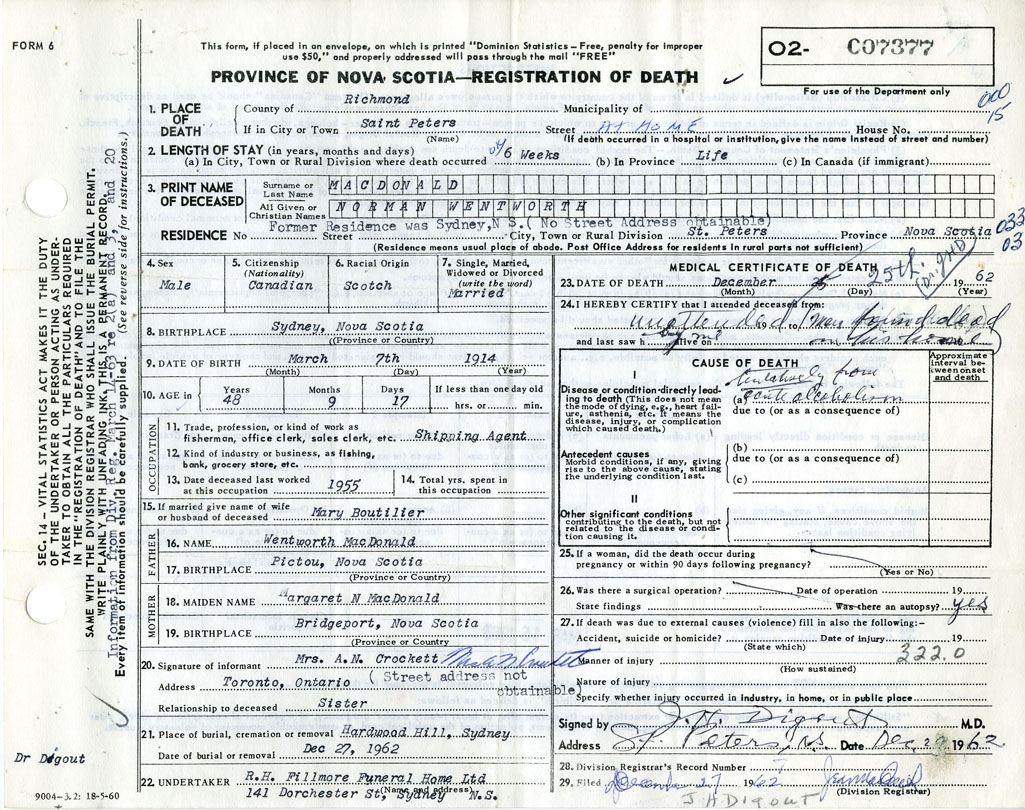 FORM 6
This form, if placed in an envelope, on which is printed "Dominion Statistics – Free, penalty for improper
use $50," and properly addressed will pass through the mail "FREE"
PROVINCE OF NOVA SCOTIA—REGISTRATION OF DEATH
O2- C07377
For use of the Department only
000
15
1. PLACE OF DEATH
County of Richmond Municipality of
If in City or Town Saint Peters Street AT HOME House No.
(Name) (If death occurred in a hospital or institution, give the name instead of street and number)
2. LENGTH OF STAY (in years, months and days)
(a) In City, Town or Rural Division where death occurred 6 Weeks (b) In Province Life (c) In Canada (if immigrant)
3. PRINT NAME OF DECEASED
Surname or Last Name MACDONALD
All Given or Christian Names NORMAN WENTWORTH
Former Residence was Sydney,N S.( No Street Address obtainable)
RESIDENCE No Street City, Town or Rural Division St. Peters Province Nova Scotia
033
03
(Residence means usual place of abode. Post Office Address for residents in rural parts not sufficient)
4. Sex Male
5. Citizenship (Nationality) Canadian
6. Racial Origin Scotch
7. Single, Married, Widowed or Divorced (write the word) Married
8. BIRTHPLACE Sydney, Nova Scotia
((Province or Country)
9. DATE OF BIRTH March 7th 1914
(Month) (Day) (Year)
10. AGE in Years 48 Months 9 Days 17 If less than one day old hrs. or min.
OCCUPATION
11. Trade, profession, or kind of work as
fisherman, office clerk, sales clerk, etc. Shipping Agent
12. Kind of industry or business, as fishing,
bank, grocery store, etc.
13. Date deceased last worked at this occupation 1955
14. Total yrs. spent in this occupation
15. If married give name of wife
or husband of deceased Mary Boutilier
FATHER
16. NAME Wentworth MacDonald
17. BIRTHPLACE Pictou, Nova Scotia
(Province or Country)
MOTHER
18. MAIDEN NAME Margaret N MacDonald
19. BIRTHPLACE Bridgeport, Nova Scotia
(Province or Country)
20. Signature of informant Mrs. A.N. Crockett
Address Toronto, Ontario ( Street address not
obtainable)
Relationship to deceased Sister
21. Place of burial, cremation or removal Hardwood Hill, Sydney
Date of burial or removal Dec 27, 1962
22. UNDERTAKER R.H. Fillmore Funeral Home Ltd
(Name and address)
141 Dorchester St, Sydney N.S.
MEDICAL CERTIFICATE OF DEATH
23. DATE OF DEATH December 25th 1962
(Month) (Day) (Year)
(Dr. JHD)
24. I HEREBY CERTIFY that I attended deceased from:
unattended 19 to Man found dead
and last saw h alive on in his home 19
CAUSE OF DEATH
Approximate interval between onset and death
I
Disease or condition directly leading to death (This does not mean
the mode of dying, e.g., heart failure, asthenia, etc. It means the
disease, injury, or complication
which caused death.)
tentatively from
(a) acute alcoholism
due to (or as a consequence of)
Antecedent causes
Morbid conditions, if any, giving
rise to the above cause, stating
the underlying condition last.
(b)
due to (or as a consequence of)
(c)
II
Other significant conditions
contributing to the death, but not
related to the disease or condition
causing it.
25. If a woman, did the death occur during
pregnancy or within 90 days following pregnancy?
(Yes or No)
26. Was there a surgical operation? Date of operation 19
State findings Was there an autopsy? yes
27. If death was due to external causes (violence) fill in also the following:–
Accident, suicide or homicide? Date of injury 19
(State which)
322.0
Manner of injury
(How sustained)
Nature of injury
Specify whether injury occurred in industry, in home, or in public place
Signed by J.H. Digout M.D.
Address St. Peters, N.S. Date Dec. 29 1962
28. Division Registrar's Record Number 7
29. Filed December 27 1962
(Division Registrar)
J H DIGOUT
SEC. 14 – VITAL STATISTICS ACT MAKES IT THE DUTY
OF THE UNDERTAKER OR PERSON ACTING AS UNDERTAKER
TO OBTAIN ALL THE PARTICULARS REQUIRED
IN THE "REGISTRATION OF DEATH" AND TO FILE THE
SAME WITH THE DIVISION REGISTRAR WHO SHALL ISSUE THE BURIAL PERMIT.
WRITE PLAINLY WITH UNFADING INK, THIS IS A PERMANENT RECORD.
Information from Div. Reg. March 1/63 re 2(a), 3, and 20
Every item of information should be carefully supplied. (See reverse side for instructions.)
Dr Digout
9004-3.2: 18-5-60